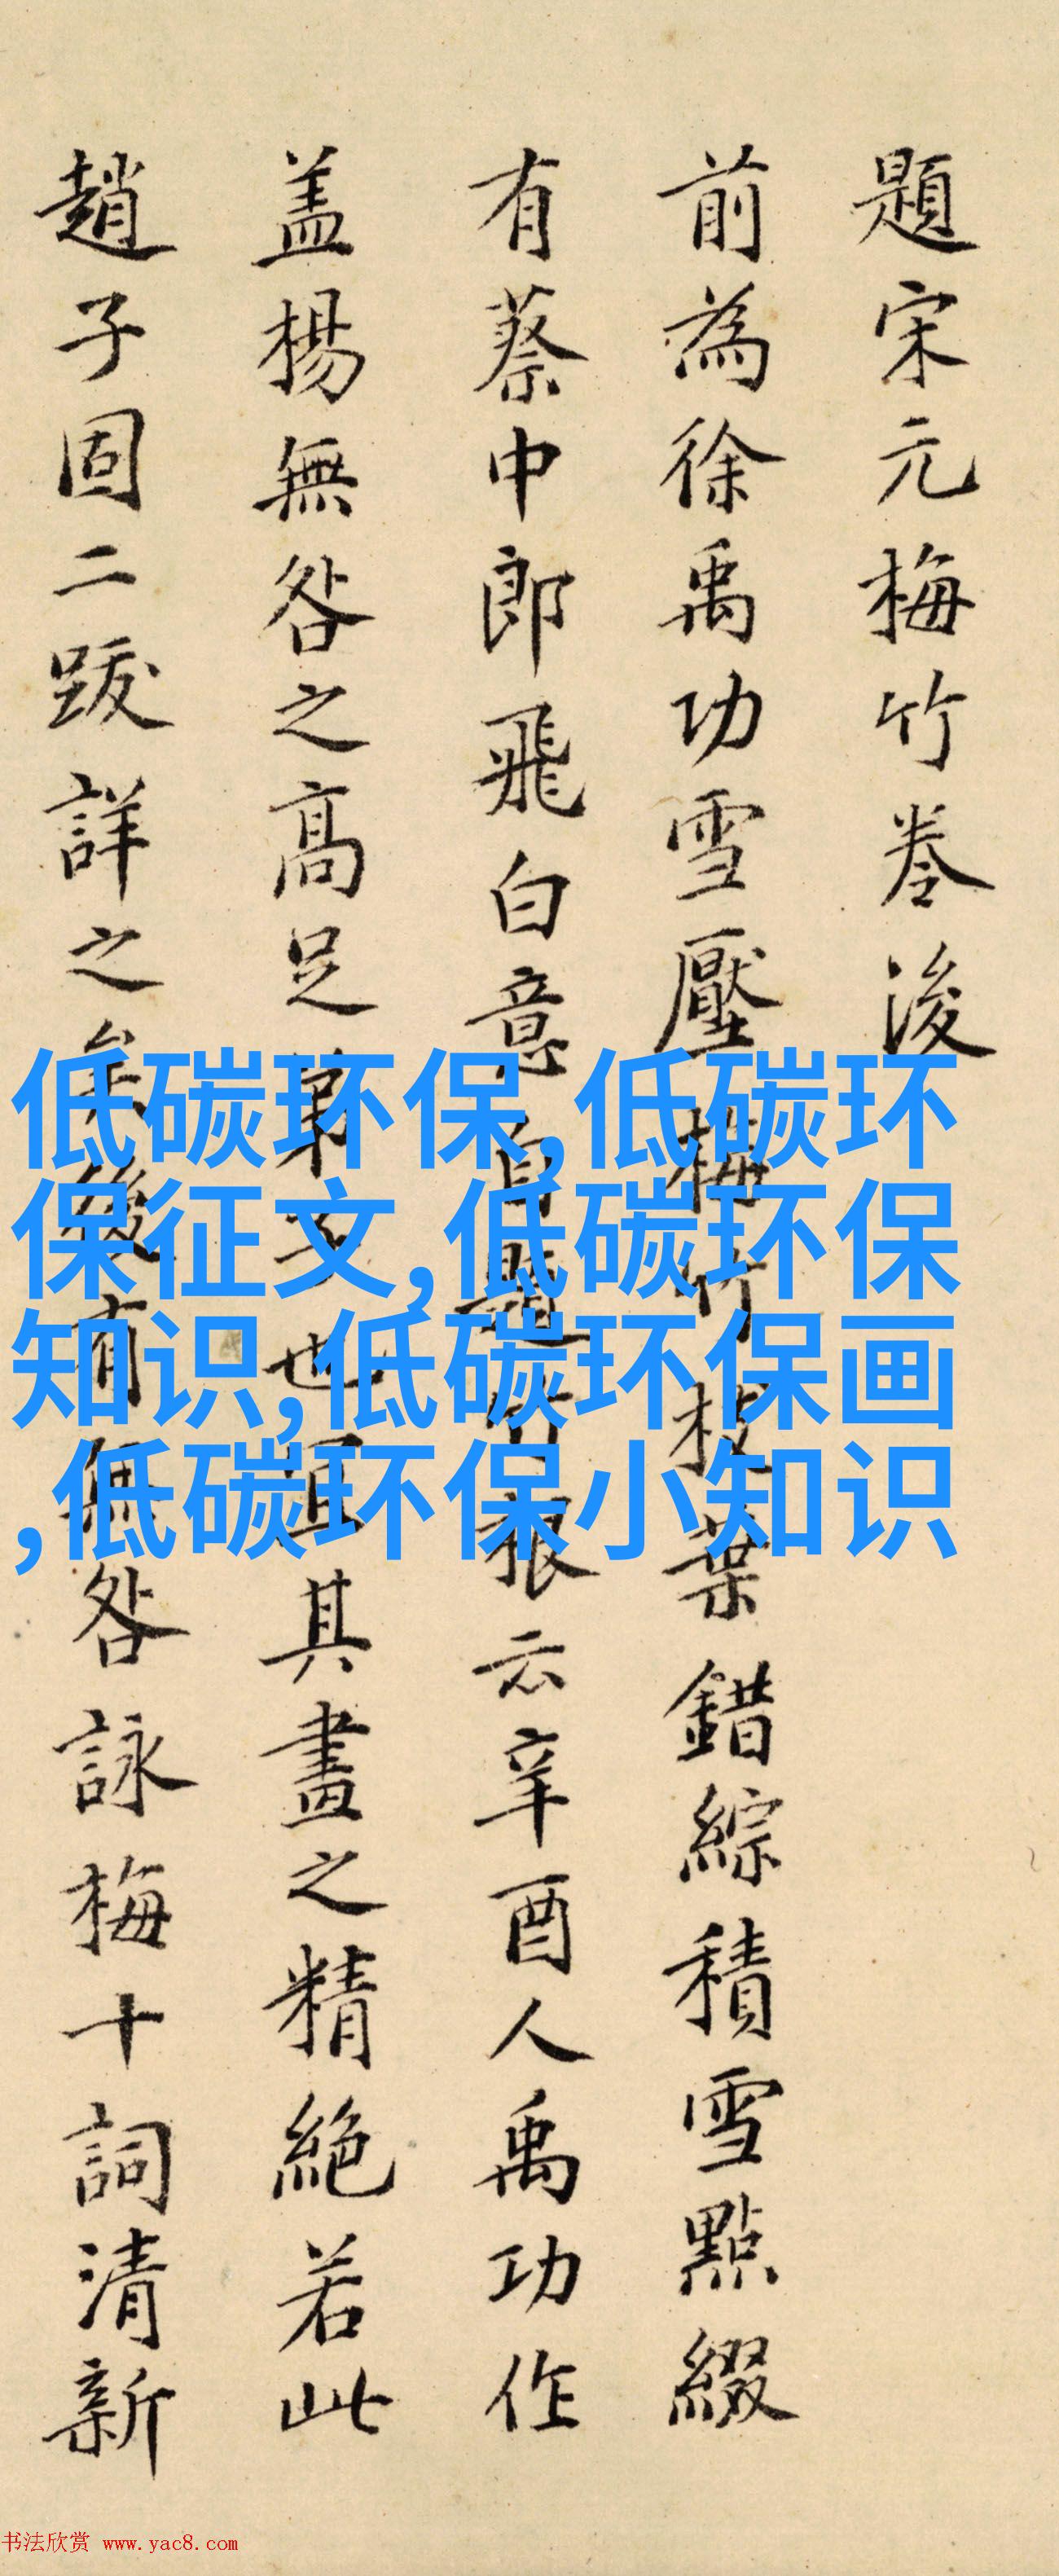 題宋元梅竹卷後
前為徐禹功雪壓梅竹枝葉錯綜積雪點綴
有蔡中郎飛白意自題云辛酉人禹功作
盖楊無咎之高足弟子也宜其畫之精絕若此
趙子固二跋詳之矣後有無咎詠梅十詞清新
低碳环保,低碳环
保征文,低碳环保
知识,低碳环保画
,低碳环保小知识
书法欣赏 www.yac8.com